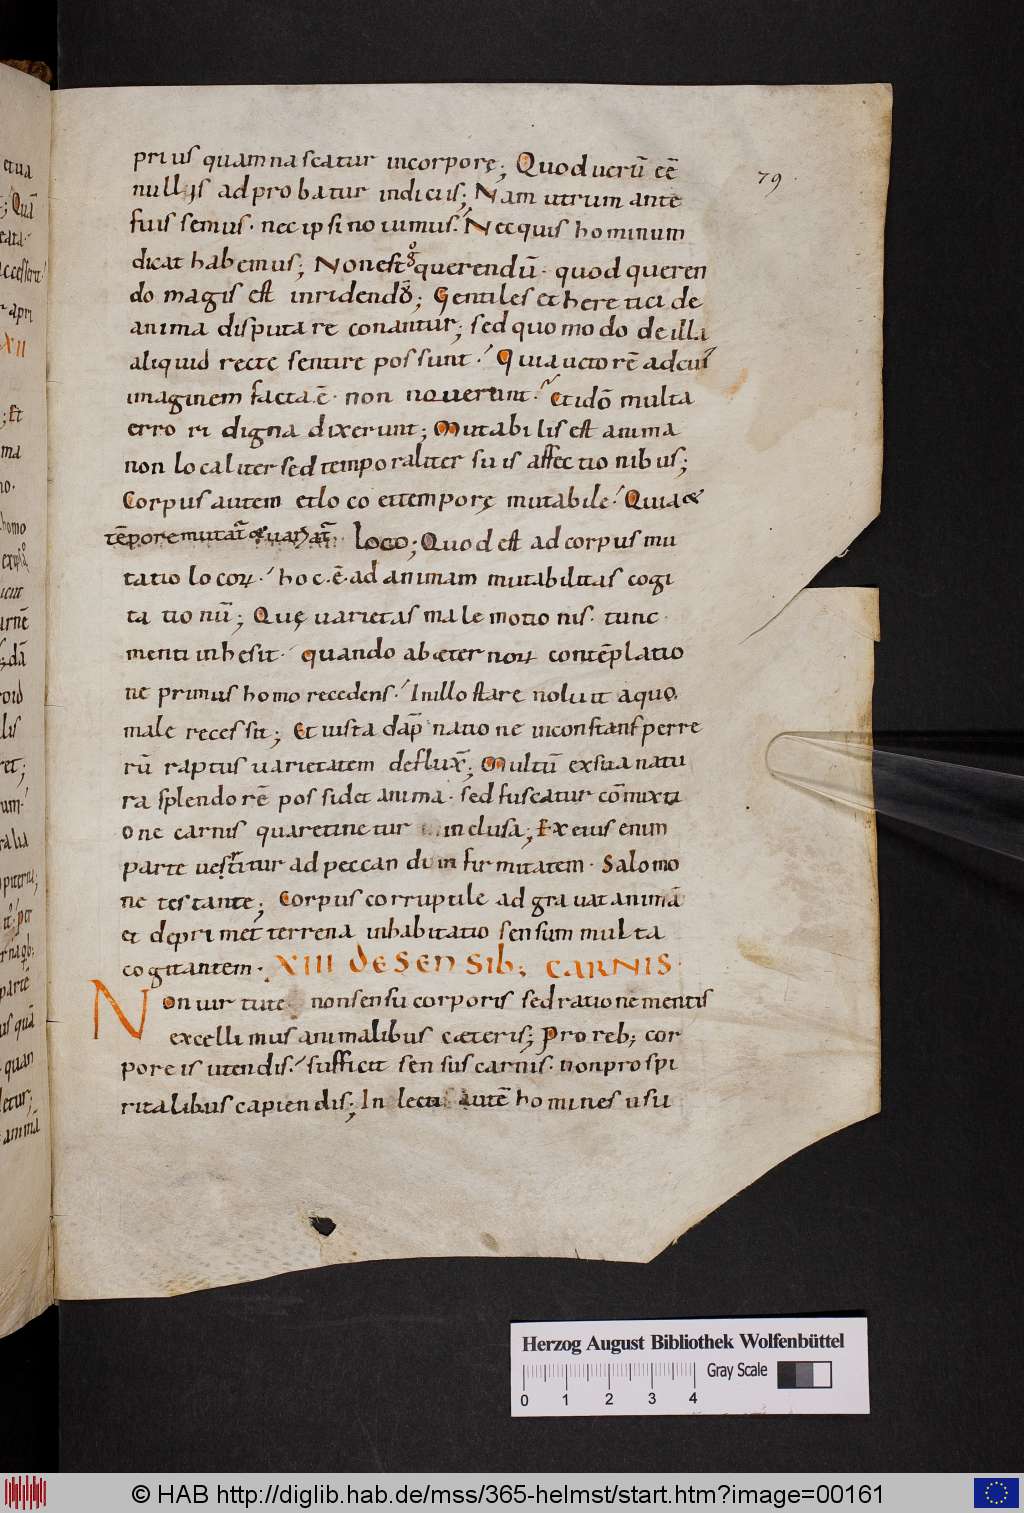 prius quam nascatur incorporę; Quod uerū eē
nullis adprobatur indiciis; Nam utrum ante
fuissemus · nec ipsi nouimus · Nec quis hominum
dicat habemus; Non est g̊ querendū · quod queren
do magis est inridendū; Gentiles et heretici de
anima disputare conantur; sed quomodo de illa
aliquid recte sentire possunt · Qui auctorē ad cui'
imaginem facta ē · non nouerunt · Et idō multa
errori digna dixerunt; Mutabilis est anima
non localiter sed temporaliter suis affectionibus;
Corpus autem et loco et temporę mutabile · Quia &
tēpore mutat̄ & uariat̄ loco; Quod est ad corpus mu
tatio locoꝝ · hoc · ē · ad animam mutabilitas cogi
tationū; Quę uarietas male motionis · tunc ·
menti inhesit · quando ab æternoꝝ contēplatio
ne primus homo recedens · In illo stare noluit a quo
male recessit; Et iusta dāpnatione inconstans per re
rū raptus uarietatem deflux̄; Multū ex sua natu
ra splendorē possidet anima · sed fuscatur cōmixti
one carnis qua retinetur inclusa; Ex eius enim
parte uertitur ad peccandi infirmitatem · Salomo
ne testante; Corpus corruptile adgrauat animā
et deprimet terrena inhabitatio sensum multa
cogitantem · XIII DE SENSIB; CARNIS ·
Non uirtute non sensu corporis sed ratione mentis
excellimus animalibus cæteris; Pro reb; cor
poreis utendis · sufficit sensus carnis · non pro spi
ritalibus capiendis; In lectu autē homines usu
79 ·
etua
; Quā
XII
; Et
ma
homo
icut
arnē
; dā
lis
ret;
um ·
ralia
; per
parte
us quā
quan
letur;
animā
Herzog August Bibliothek Wolfenbüttel
Gray Scale
0 1 2 3 4
© HAB http://diglib.hab.de/mss/365-helmst/start.htm?image=00161